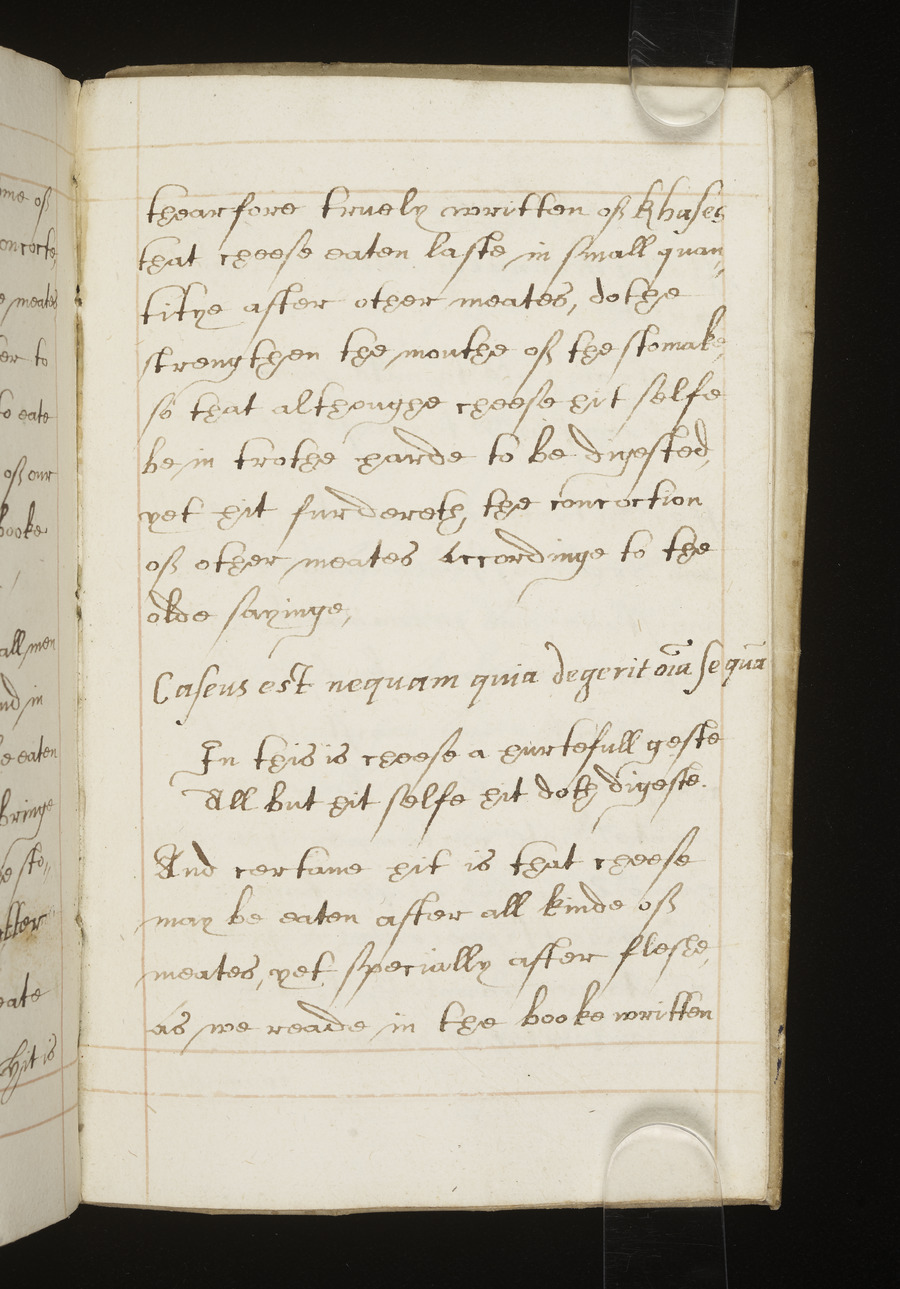 me of
thearfore truely written of Khases
concocte,
that cheese eaten laste in small quan„
meates
titye after other meates, dothe
er to
strengthen the mouthe of the stomake,
to eate
so that althoughe cheese hit selfe
of our
be in trothe harde to be digested,
booke
yet hit furdereth, the concoction
of other meates Accordinge to the
olde sayinge,
all men
Caseus est nequam quia degerit oīa se quā
nd in
In this is cheese a hurtefull geste
e eaten
All but hit selfe hit doth digeste.
bringe
And certane hit is that cheese
sto„
may be eaten after all kinde of
tter
meates, yet specially after fleshe,
eate
as we reade in the booke written
Hit is